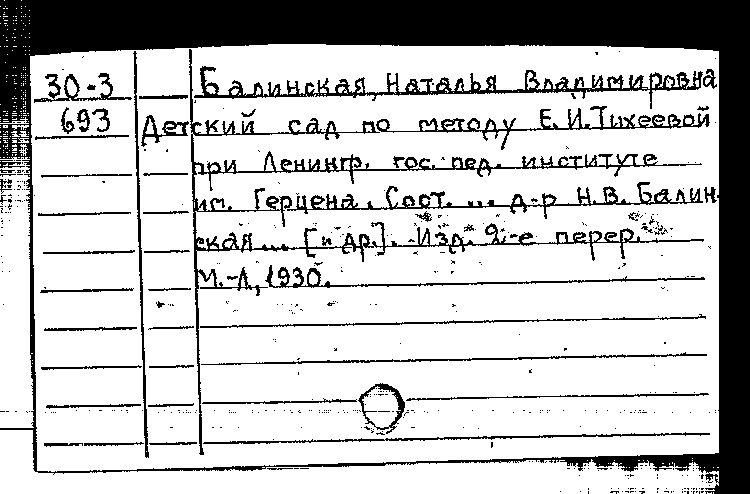 30-3 Балинская, Наталья Владимировна
693 Детский сад по методу Е.И.Тихеевой
при Ленингр. гос. пед. институте
им. Герцена. Сост. ... д-р Н.В. Балин-
ская... [и др.]. Изд. 2-е перер.
М.-Л., 1930.